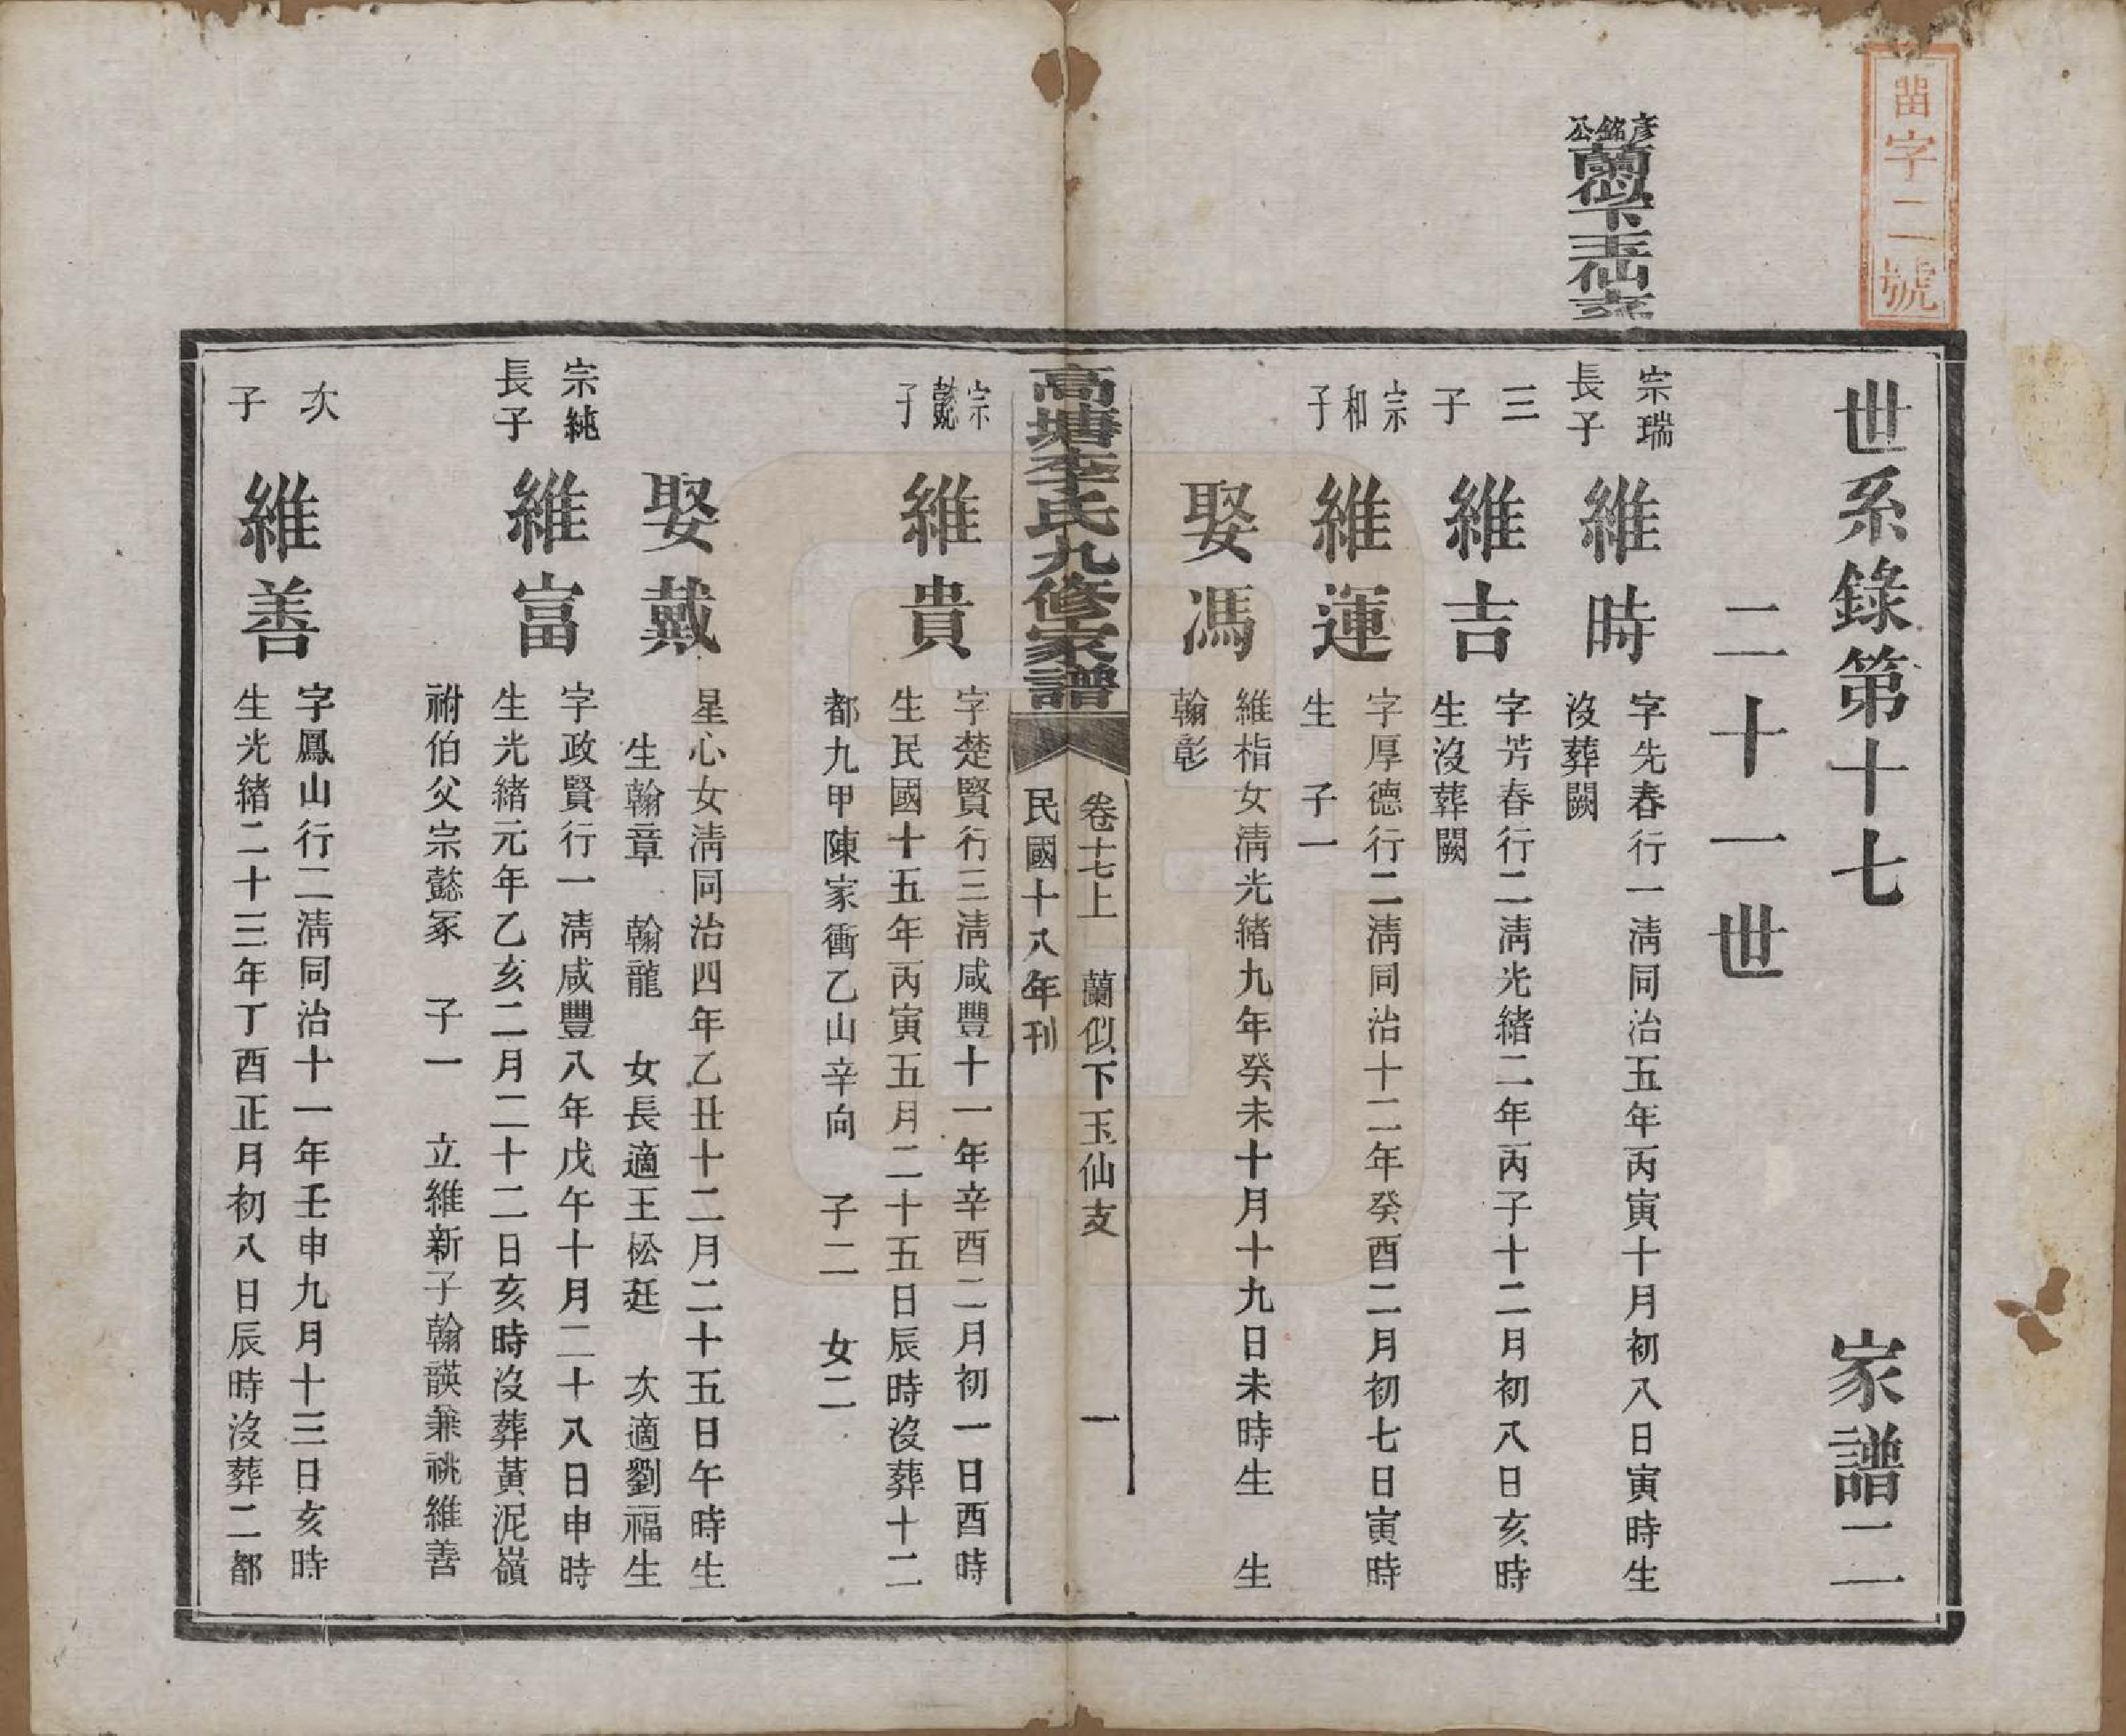 畱字二號
彥銘公
蘭似下玉仙支
世系錄第十七　家譜二
二十一世
宗瑞長子
維時
字先春行一淸同治五年丙寅十月初八日寅時生
沒葬闕
三子
維吉
字芳春行二淸光緒二年丙子十二月初八日亥時
生沒葬闕
宗和子
維運
字厚德行二淸同治十二年癸酉二月初七日寅時
生　子一
娶馮
維楷女淸光緒九年癸未十月十九日未時生　生
翰彰
高塘李氏九修家譜
卷十七上　蘭似下玉仙支　一
民國十八年刊
宗懿子
維貴
字楚賢行三淸咸豐十一年辛酉二月初一日酉時
生民國十五年丙寅五月二十五日辰時沒葬十二
都九甲陳家衝乙山辛向　子二　女二
娶戴
星心女淸同治四年乙丑十二月二十五日午時生
生翰章　翰龍　女長適王松廷　次適劉福生
宗純長子
維富
字政賢行一淸咸豐八年戊午十月二十八日申時
生光緒元年乙亥二月二十二日亥時沒葬黃泥嶺
祔伯父宗懿冢　子一　立維新子翰韺兼祧維善
次子
維善
字鳳山行二淸同治十一年壬申九月十三日亥時
生光緒二十三年丁酉正月初八日辰時沒葬二都